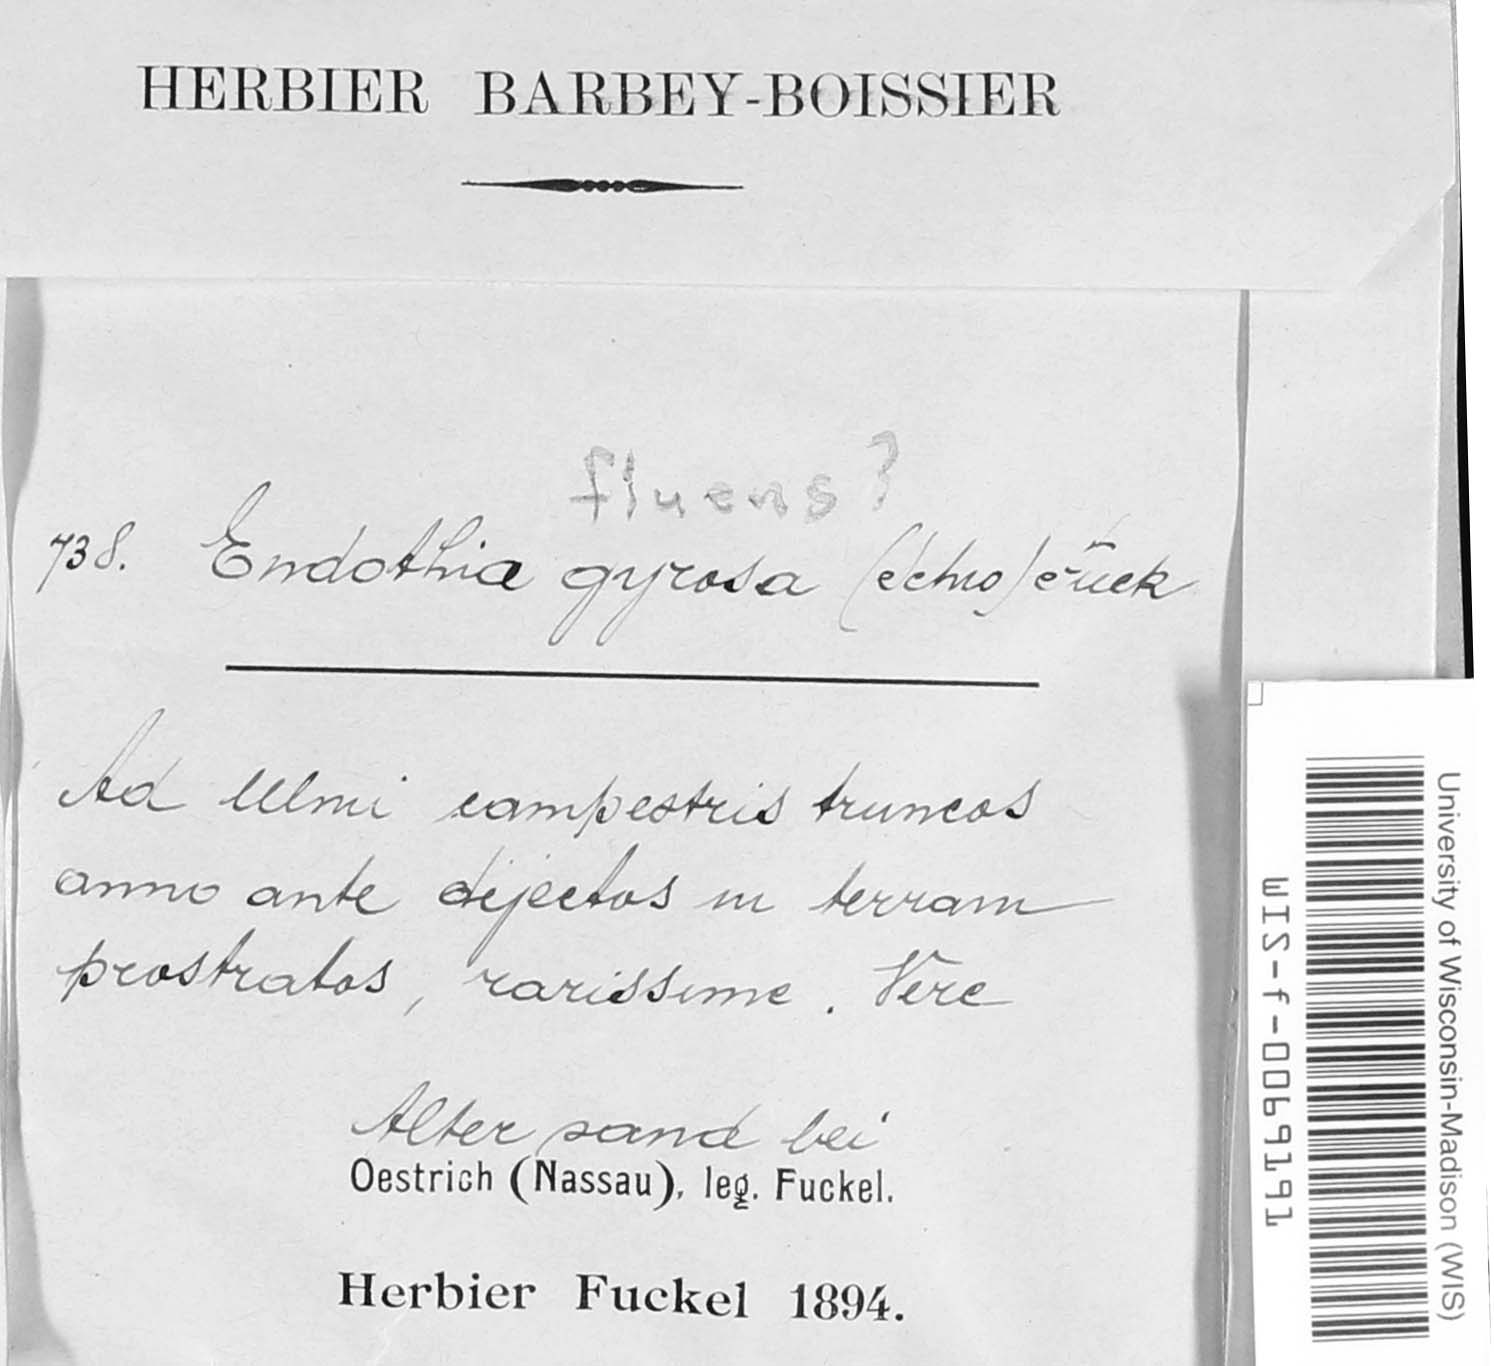 HERBIER BARBEY-BOISSIER
fluens?
738. Endothia gyrosa
Ad Ulmi campestris truncos
anno ante dejectos in terram
prostratos, rarissime. Vere
Alter sand bei
Oestrich (Nassau), leg. Fuckel.
Herbier Fuckel 1894.
University of Wisconsin-Madison (WIS)
WIS-f-0069191